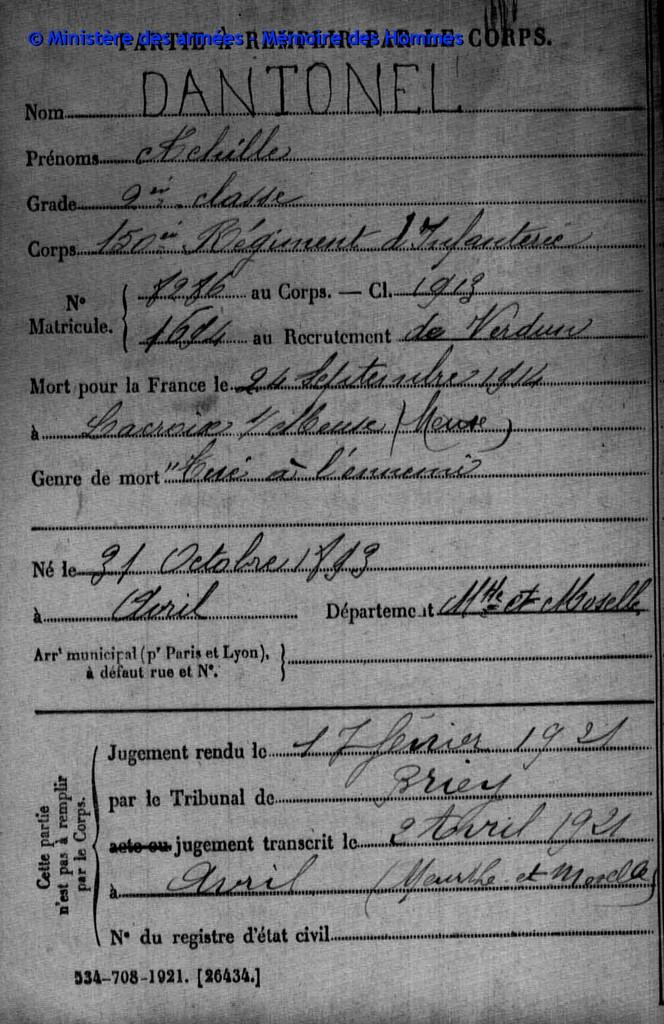 © Ministère des armées - Mémoire des Hommes
PARTIE À REMPLIR PAR LE CORPS.
Nom DANTONEL
Prénoms Achille
Grade 2è classe
Corps 150è Régiment d'Infanterie
N° Matricule. { 8276 au Corps. — Cl. 1913
1684 au Recrutement de Verdun
Mort pour la France le 24 Septembre 1914
à Lacroix s/ Meuse (Meuse)
Genre de mort "Tué à l'ennemi
Né le 31 Octobre 1893
à Avril Département Mthe et Moselle
Arrt municipal (pr Paris et Lyon), à défaut rue et N°. }
Cette partie n'est pas à remplir par le Corps.
Jugement rendu le 17 février 1921
par le Tribunal de Briey
acte ou jugement transcrit le 2 Avril 1921
à Avril (Meurthe et Moselle)
N° du registre d'état civil
534-708-1921. [26434.]